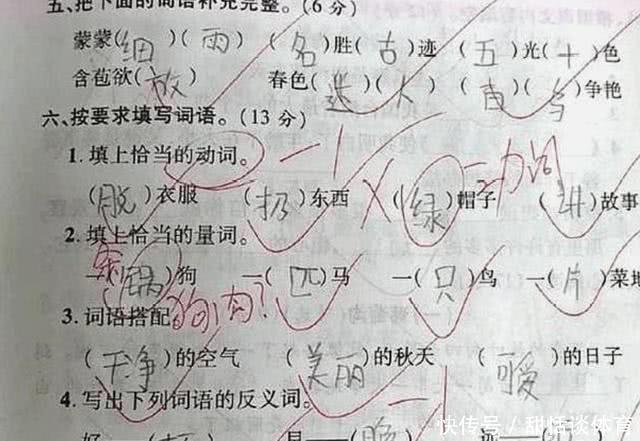 五、把下面的词语补充完整。(6分)
蒙蒙(细)(雨) (名)胜(古)迹 (五)光(十)色
含苞欲(放) 春色(迷)(人) (百)( )争艳
六、按要求填写词语。(13分)
-1
1.填上恰当的动词。
=动词
(脱)衣服 (扔)东西 (绿)帽子 (讲)故事
2.填上恰当的量词。
一(锅)狗 一(匹)马 一(只)鸟 一(片)菜地
狗肉?
3.词语搭配
(干净)的空气 (美丽)的秋天 (可爱)的日子
4.写出下列词语的反义词。
快传号/甜恬谈体育